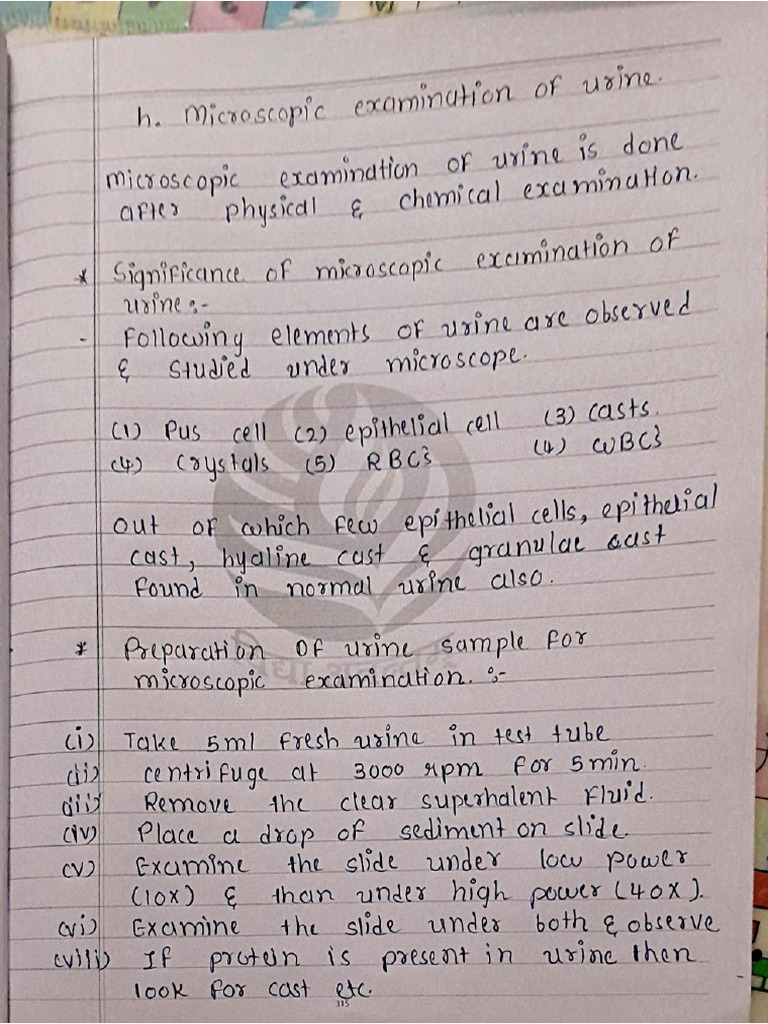 h. Microscopic examination of urine.
microscopic examination of urine is done
after physical & chemical examination.
* Significance of microscopic examination of
urine :-
- Following elements of urine are observed
& studied under microscope.
(1) Pus cell (2) epithelial cell (3) casts.
(4) crystals (5) RBC's (4) WBC's
out of which few epithelial cells, epithelial
cast, hyaline cast & granular cast
found in normal urine also.
* Preparation of urine sample for
microscopic examination. :-
(i) Take 5ml fresh urine in test tube
(ii) centrifuge at 3000 rpm for 5min.
(iii) Remove the clear superhalent fluid.
(iv) Place a drop of sediment on slide.
(v) Examine the slide under low power
(10x) & than under high power (40x).
(vi) Examine the slide under both & observe
(viii) If protein is present in urine then
look for cast etc.
315